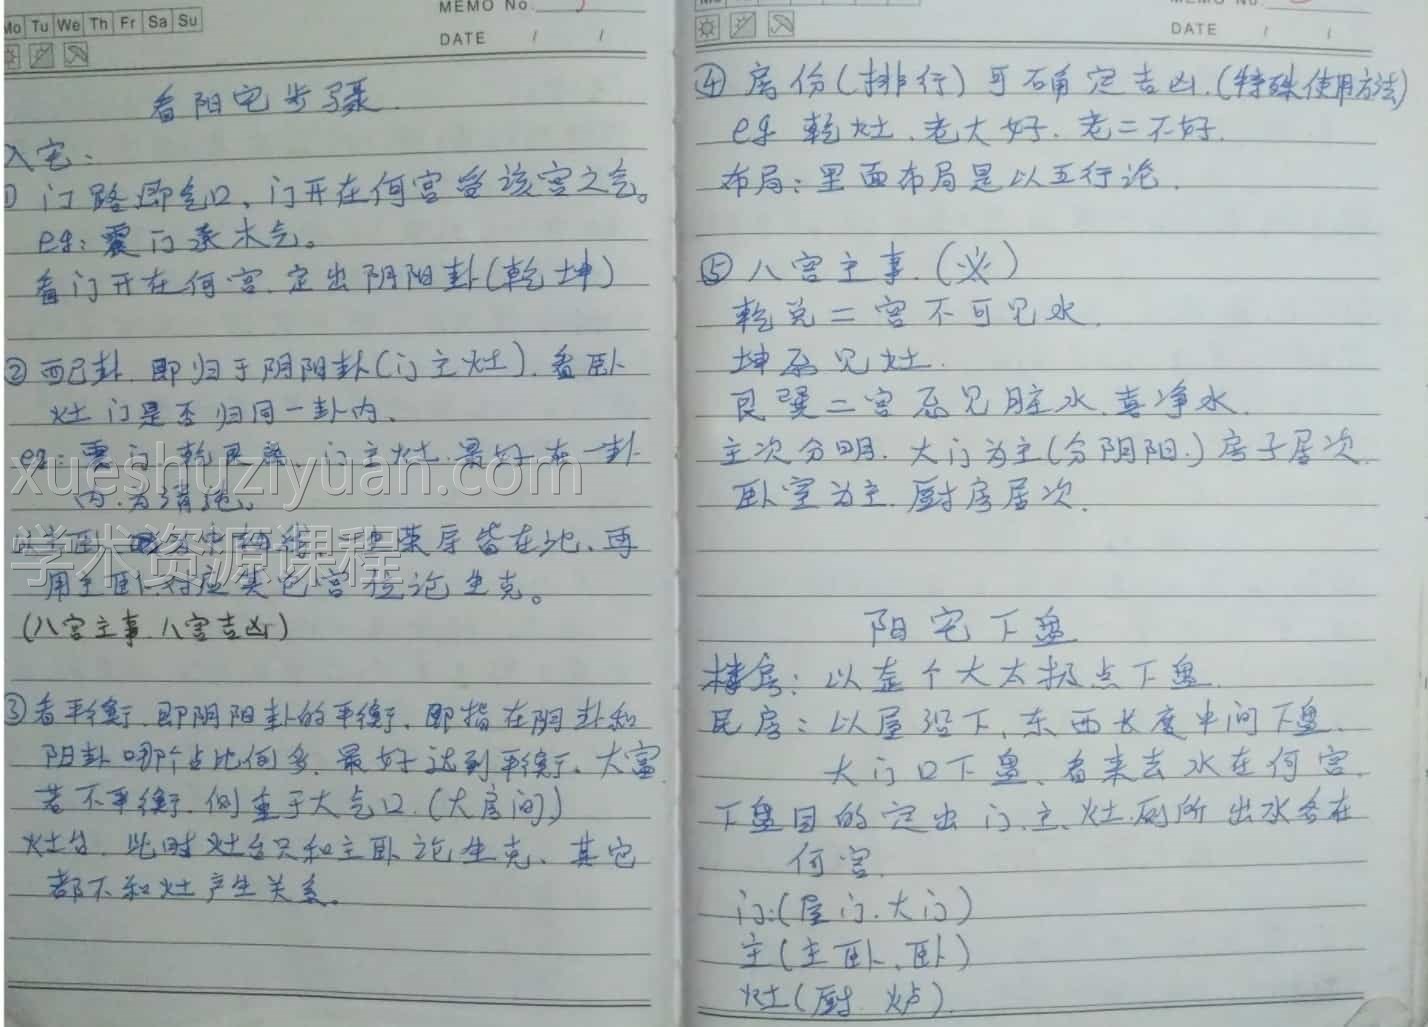 Mo Tu We Th Fr Sa Su
MEMO No.
DATE / /
看阳宅步骤.
入宅:
① 门路即气口、门开在何宫受该宫之气。
eg: 震门承木气。
看门开在何宫.定出阴阳卦(乾坤)
② 配卦.即归于阴阳卦(门主灶).看卧
灶门是否归同一卦内.
eg: 震门乾艮 门主灶.最好在一卦
内.为清纯。
皆在此、再
用主卧对应其它宫位论生克。
(八宫主事.八宫吉凶)
③ 看平衡.即阴阳卦的平衡.即指在阴卦和
阳卦哪个占比例多.最好达到平衡、大富.
若不平衡.侧重于大气口.(大房间)
灶台.此时灶台只和主卧论生克、其它
都不和灶产生关系。
MEMO No.
DATE / /
④ 房份(排行)可确定吉凶.(特殊使用方法)
eg 乾灶.老大好.老二不好.
布局:里面布局是以五行论.
⑤ 八宫主事.(必)
乾兑二宫不可见水.
坤忌见灶.
艮巽二宫忌见脏水.喜净水.
主次分明.大门为主(分阴阳.)房子居次.
卧室为主.厨房居次.
阳宅下盘
楼房:以整个大太极点下盘.
民房:以屋沿下、东西长度中间下盘.
大门口下盘、看来去水在何宫.
下盘目的定出门、主、灶.厕所出水各在
何宫.
门:(屋门.大门)
主(主卧、卧)
灶(厨 炉).
xueshuziyuan.com
学术资源课程